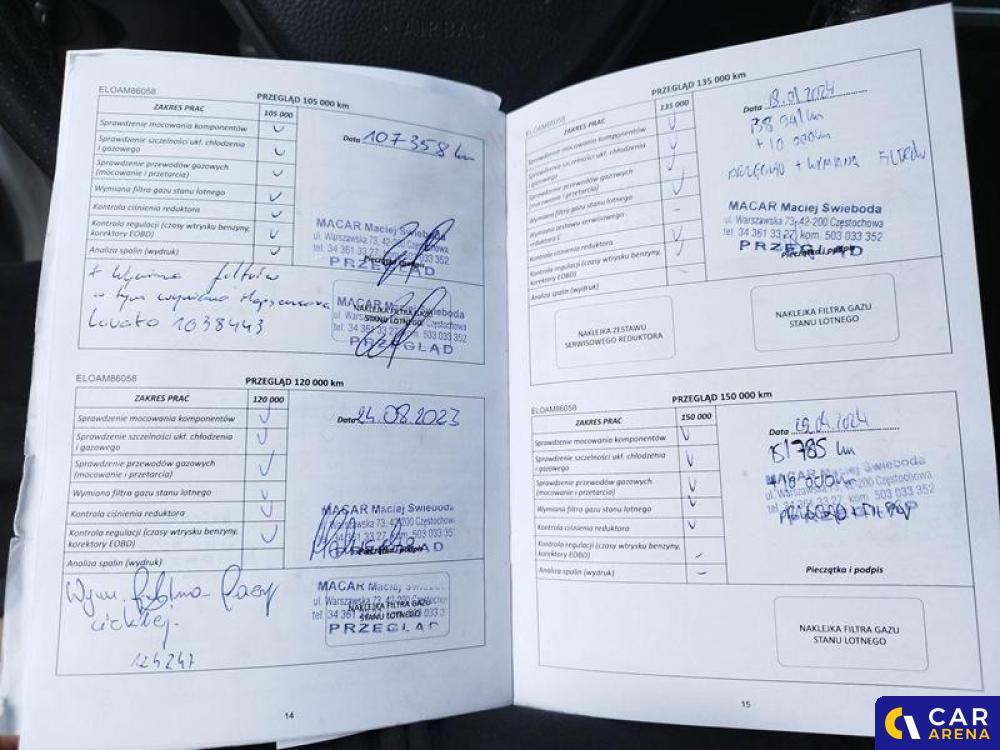 AIRBAG
ELOAM86058
PRZEGLĄD 105 000 km
ZAKRES PRAC
105 000
Sprawdzenie mocowania komponentów
Sprawdzenie szczelności ukł. chłodzenia
i gazowego
Sprawdzenie przewodów gazowych
(mocowanie i przetarcia)
Wymiana filtra gazu stanu lotnego
Kontrola ciśnienia reduktora
Kontrola regulacji (czasy wtrysku benzyny,
korektory EOBD)
Analiza spalin (wydruk)
Data 107358 km
MACAR Maciej Świeboda
ul. Warszawska 73, 42-200 Częstochowa
tel. 34 361 33 27 kom. 503 033 352
PRZEGLĄD
Pieczątka i podpis
+ wymiana filtrów
w tym wymiana
Lovato 1038443
MACAR Maciej Świeboda
ul. Warszawska 73, 42-200 Częstochowa
tel. 34 361 33 27 kom. 503 033 352
PRZEGLĄD
NAKLEJKA FILTRA GAZU
STANU LOTNEGO
ELOAM86058
PRZEGLĄD 120 000 km
ZAKRES PRAC
120 000
Sprawdzenie mocowania komponentów
Sprawdzenie szczelności ukł. chłodzenia
i gazowego
Sprawdzenie przewodów gazowych
(mocowanie i przetarcia)
Wymiana filtra gazu stanu lotnego
Kontrola ciśnienia reduktora
Kontrola regulacji (czasy wtrysku benzyny,
korektory EOBD)
Analiza spalin (wydruk)
Data 24.08.2023
MACAR Maciej Świeboda
ul. Warszawska 73, 42-200 Częstochowa
tel. 34 361 33 27 kom. 503 033 352
Pieczątka i podpis
Wym. filtra fazy
ciekłej.
124247
MACAR Maciej Świeboda
ul. Warszawska 73, 42-200 Częstochowa
NAKLEJKA FILTRA GAZU
STANU LOTNEGO
PRZEGLĄD
14
ELOAM86058
PRZEGLĄD 135 000 km
ZAKRES PRAC
135 000
Sprawdzenie mocowania komponentów
Sprawdzenie szczelności ukł. chłodzenia
i gazowego
Sprawdzenie przewodów gazowych
(mocowanie i przetarcia)
Wymiana filtra gazu stanu lotnego
Wymiana zestawu serwisowego
reduktora
Kontrola ciśnienia reduktora
Kontrola regulacji (czasy wtrysku benzyny,
korektory EOBD)
Analiza spalin (wydruk)
Data 18.01.2024
138 941 km
+ 10 000 km
PRZEGLĄD + WYMIANA FILTRÓW
MACAR Maciej Świeboda
ul. Warszawska 73, 42-200 Częstochowa
tel. 34 361 33 27 kom. 503 033 352
PRZEGLĄD
Pieczątka i podpis
NAKLEJKA ZESTAWU
SERWISOWEGO REDUKTORA
NAKLEJKA FILTRA GAZU
STANU LOTNEGO
ELOAM86058
PRZEGLĄD 150 000 km
ZAKRES PRAC
150 000
Sprawdzenie mocowania komponentów
Sprawdzenie szczelności ukł. chłodzenia
i gazowego
Sprawdzenie przewodów gazowych
(mocowanie i przetarcia)
Wymiana filtra gazu stanu lotnego
Kontrola ciśnienia reduktora
Kontrola regulacji (czasy wtrysku benzyny,
korektory EOBD)
Analiza spalin (wydruk)
Data
151785 km
+ 10 000 km
MACAR Maciej Świeboda
ul. Warszawska 73, 42-200 Częstochowa
tel. 34 361 33 27 kom. 503 033 352
Pieczątka i podpis
NAKLEJKA FILTRA GAZU
STANU LOTNEGO
15
CAR
ARENA